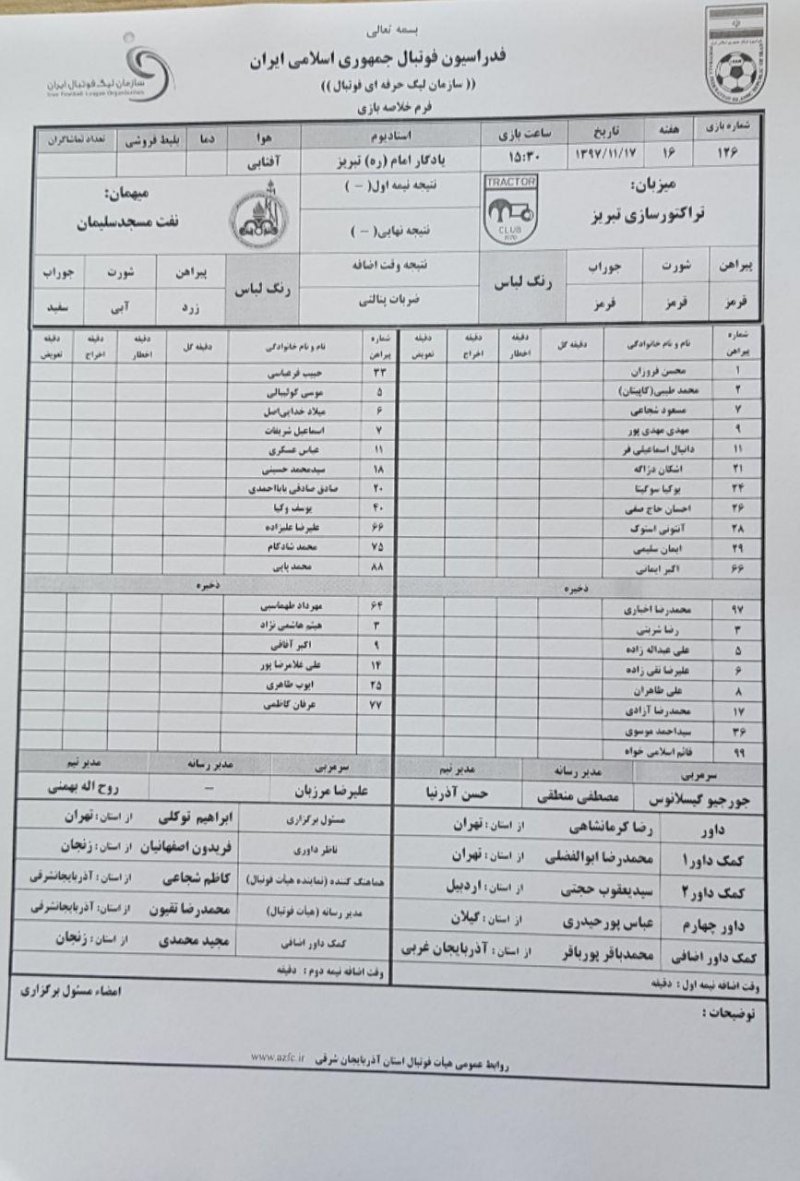 بسمه تعالی
فدراسیون فوتبال جمهوری اسلامی ایران
(( سازمان لیگ حرفه ای فوتبال ))
فرم خلاصه بازی
سازمان لیگ فوتبال ایران
Iran Football League Organization
شماره بازی هفته تاریخ ساعت بازی استادیوم هوا دما بلیط فروشی تعداد تماشاگران
۱۲۶ ۱۶ ۱۳۹۷/۱۱/۱۷ ۱۵:۳۰ یادگار امام (ره) تبریز آفتابی
میزبان:
تراکتورسازی تبریز
TRACTOR
CLUB
نتیجه نیمه اول( - )
نتیجه نهایی( - )
میهمان:
نفت مسجدسلیمان
پیراهن شورت جوراب رنگ لباس نتیجه وقت اضافه رنگ لباس پیراهن شورت جوراب
قرمز قرمز قرمز ضربات پنالتی زرد آبی سفید
شماره پیراهن نام و نام خانوادگی دقیقه گل دقیقه اخطار دقیقه اخراج دقیقه تعویض شماره پیراهن نام و نام خانوادگی دقیقه گل دقیقه اخطار دقیقه اخراج دقیقه تعویض
۱ محسن فروزان ۳۳ حبیب فرعباسی
۲ محمد طیبی(کاپیتان) ۵ موسی کولیبالی
۷ مسعود شجاعی ۶ میلاد خدایی‌اصل
۹ مهدی مهدی پور ۷ اسماعیل شریفات
۱۱ دانیال اسماعیلی فر ۱۱ عباس عسگری
۲۱ اشکان دژاگه ۱۸ سیدمحمد حسینی
۲۴ یوکیا سوگیتا ۲۰ صادق صادقی بابااحمدی
۲۶ احسان حاج صفی ۴۰ یوسف وکیا
۲۸ آنتونی استوک ۶۶ علیرضا علیزاده
۲۹ ایمان سلیمی ۷۵ محمد شادکام
۶۶ اکبر ایمانی ۸۸ محمد پاپی
ذخیره ذخیره
۹۷ محمدرضا اخباری ۶۴ مهرداد طهماسبی
۳ رضا شربتی ۳ هیثم هاشمی نژاد
۵ علی عبداله زاده ۹ اکبر آفاقی
۶ علیرضا نقی زاده ۱۴ علی غلامرضا پور
۸ علی طاهران ۲۵ ایوب طاهری
۱۷ محمدرضا آزادی ۷۷ عرفان کاظمی
۳۶ سیداحمد موسوی
۹۹ قائم اسلامی خواه
سرمربی مدیر رسانه مدیر تیم سرمربی مدیر رسانه مدیر تیم
جورجیو گیسلانوس مصطفی منطقی حسن آذرنیا علیرضا مرزبان - روح اله بهمنی
داور رضا کرمانشاهی از استان: تهران مسئول برگزاری ابراهیم توکلی از استان: تهران
کمک داور۱ محمدرضا ابوالفضلی از استان: تهران ناظر داوری فریدون اصفهانیان از استان: زنجان
کمک داور۲ سیدیعقوب حجتی از استان: اردبیل هماهنگ کننده (نماینده هیأت فوتبال) کاظم شجاعی از استان: آذربایجانشرقی
داور چهارم عباس پورحیدری از استان: گیلان مدیر رسانه (هیأت فوتبال) محمدرضا تقیون از استان: آذربایجانشرقی
کمک داور اضافی محمدباقر پورباقر از استان: آذربایجان غربی کمک داور اضافی مجید محمدی از استان: زنجان
وقت اضافه نیمه اول: دقیقه وقت اضافه نیمه دوم: دقیقه
توضیحات: امضاء مسئول برگزاری
روابط عمومی هیأت فوتبال استان آذربایجان شرقی www.azfc.ir